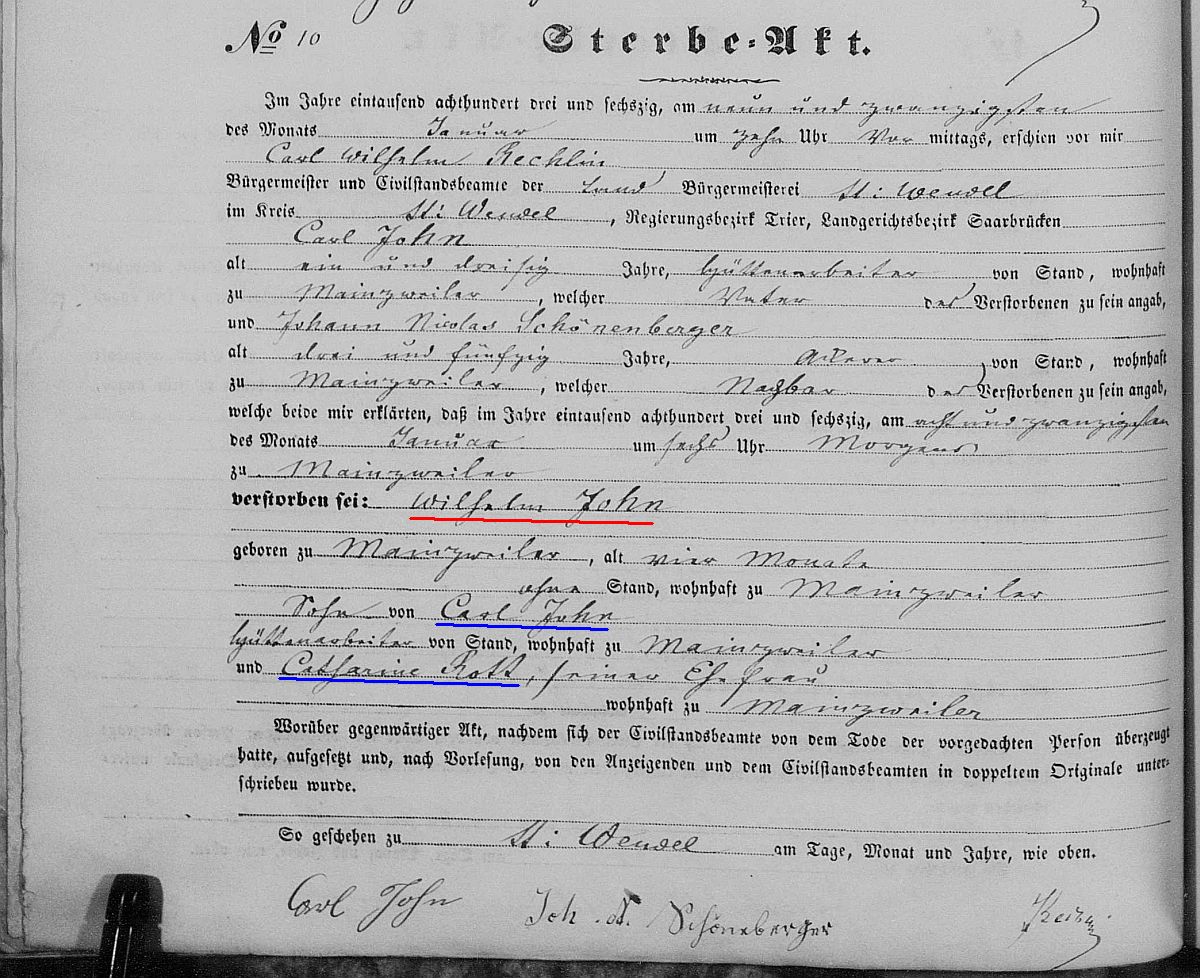 No 10 Sterbe-Akt.
Im Jahre eintausend achthundert drei und sechszig, am neun und zwanzigsten
des Monats Januar um zehn Uhr Vor mittags, erschien vor mir
Carl Wilhelm Rechlin
Bürgermeister und Civilstandsbeamte der Land Bürgermeisterei St: Wendel
im Kreis St: Wendel, Regierungsbezirk Trier, Landgerichtsbezirk Saarbrücken
Carl John
alt ein und dreisig Jahre, Hüttenarbeiter von Stand, wohnhaft
zu Mainzweiler, welcher Vater des Verstorbenen zu sein angab,
und Johann Nicolas Schönenberger
alt drei und fünfzig Jahre, Ackerer von Stand, wohnhaft
zu Mainzweiler, welcher Nachbar des Verstorbenen zu sein angab,
welche beide mir erklärten, daß im Jahre eintausend achthundert drei und sechszig, am acht und zwanzigsten
des Monats Januar um sechs Uhr Morgens
zu Mainzweiler
verstorben sei: Wilhelm John
geboren zu Mainzweiler, alt vier Monate
ohne Stand, wohnhaft zu Mainzweiler
Sohn von Carl John
Hüttenarbeiter von Stand, wohnhaft zu Mainzweiler
und Catharine Rott, seiner Ehefrau
wohnhaft zu Mainzweiler
Worüber gegenwärtiger Akt, nachdem sich der Civilstandsbeamte von dem Tode der vorgedachten Person überzeugt
hatte, aufgesetzt und, nach Vorlesung, von den Anzeigenden und dem Civilstandsbeamten in doppeltem Originale unter-
schrieben wurde.
So geschehen zu St: Wendel am Tage, Monat und Jahre, wie oben.
Carl John Joh. N. Schöneberger